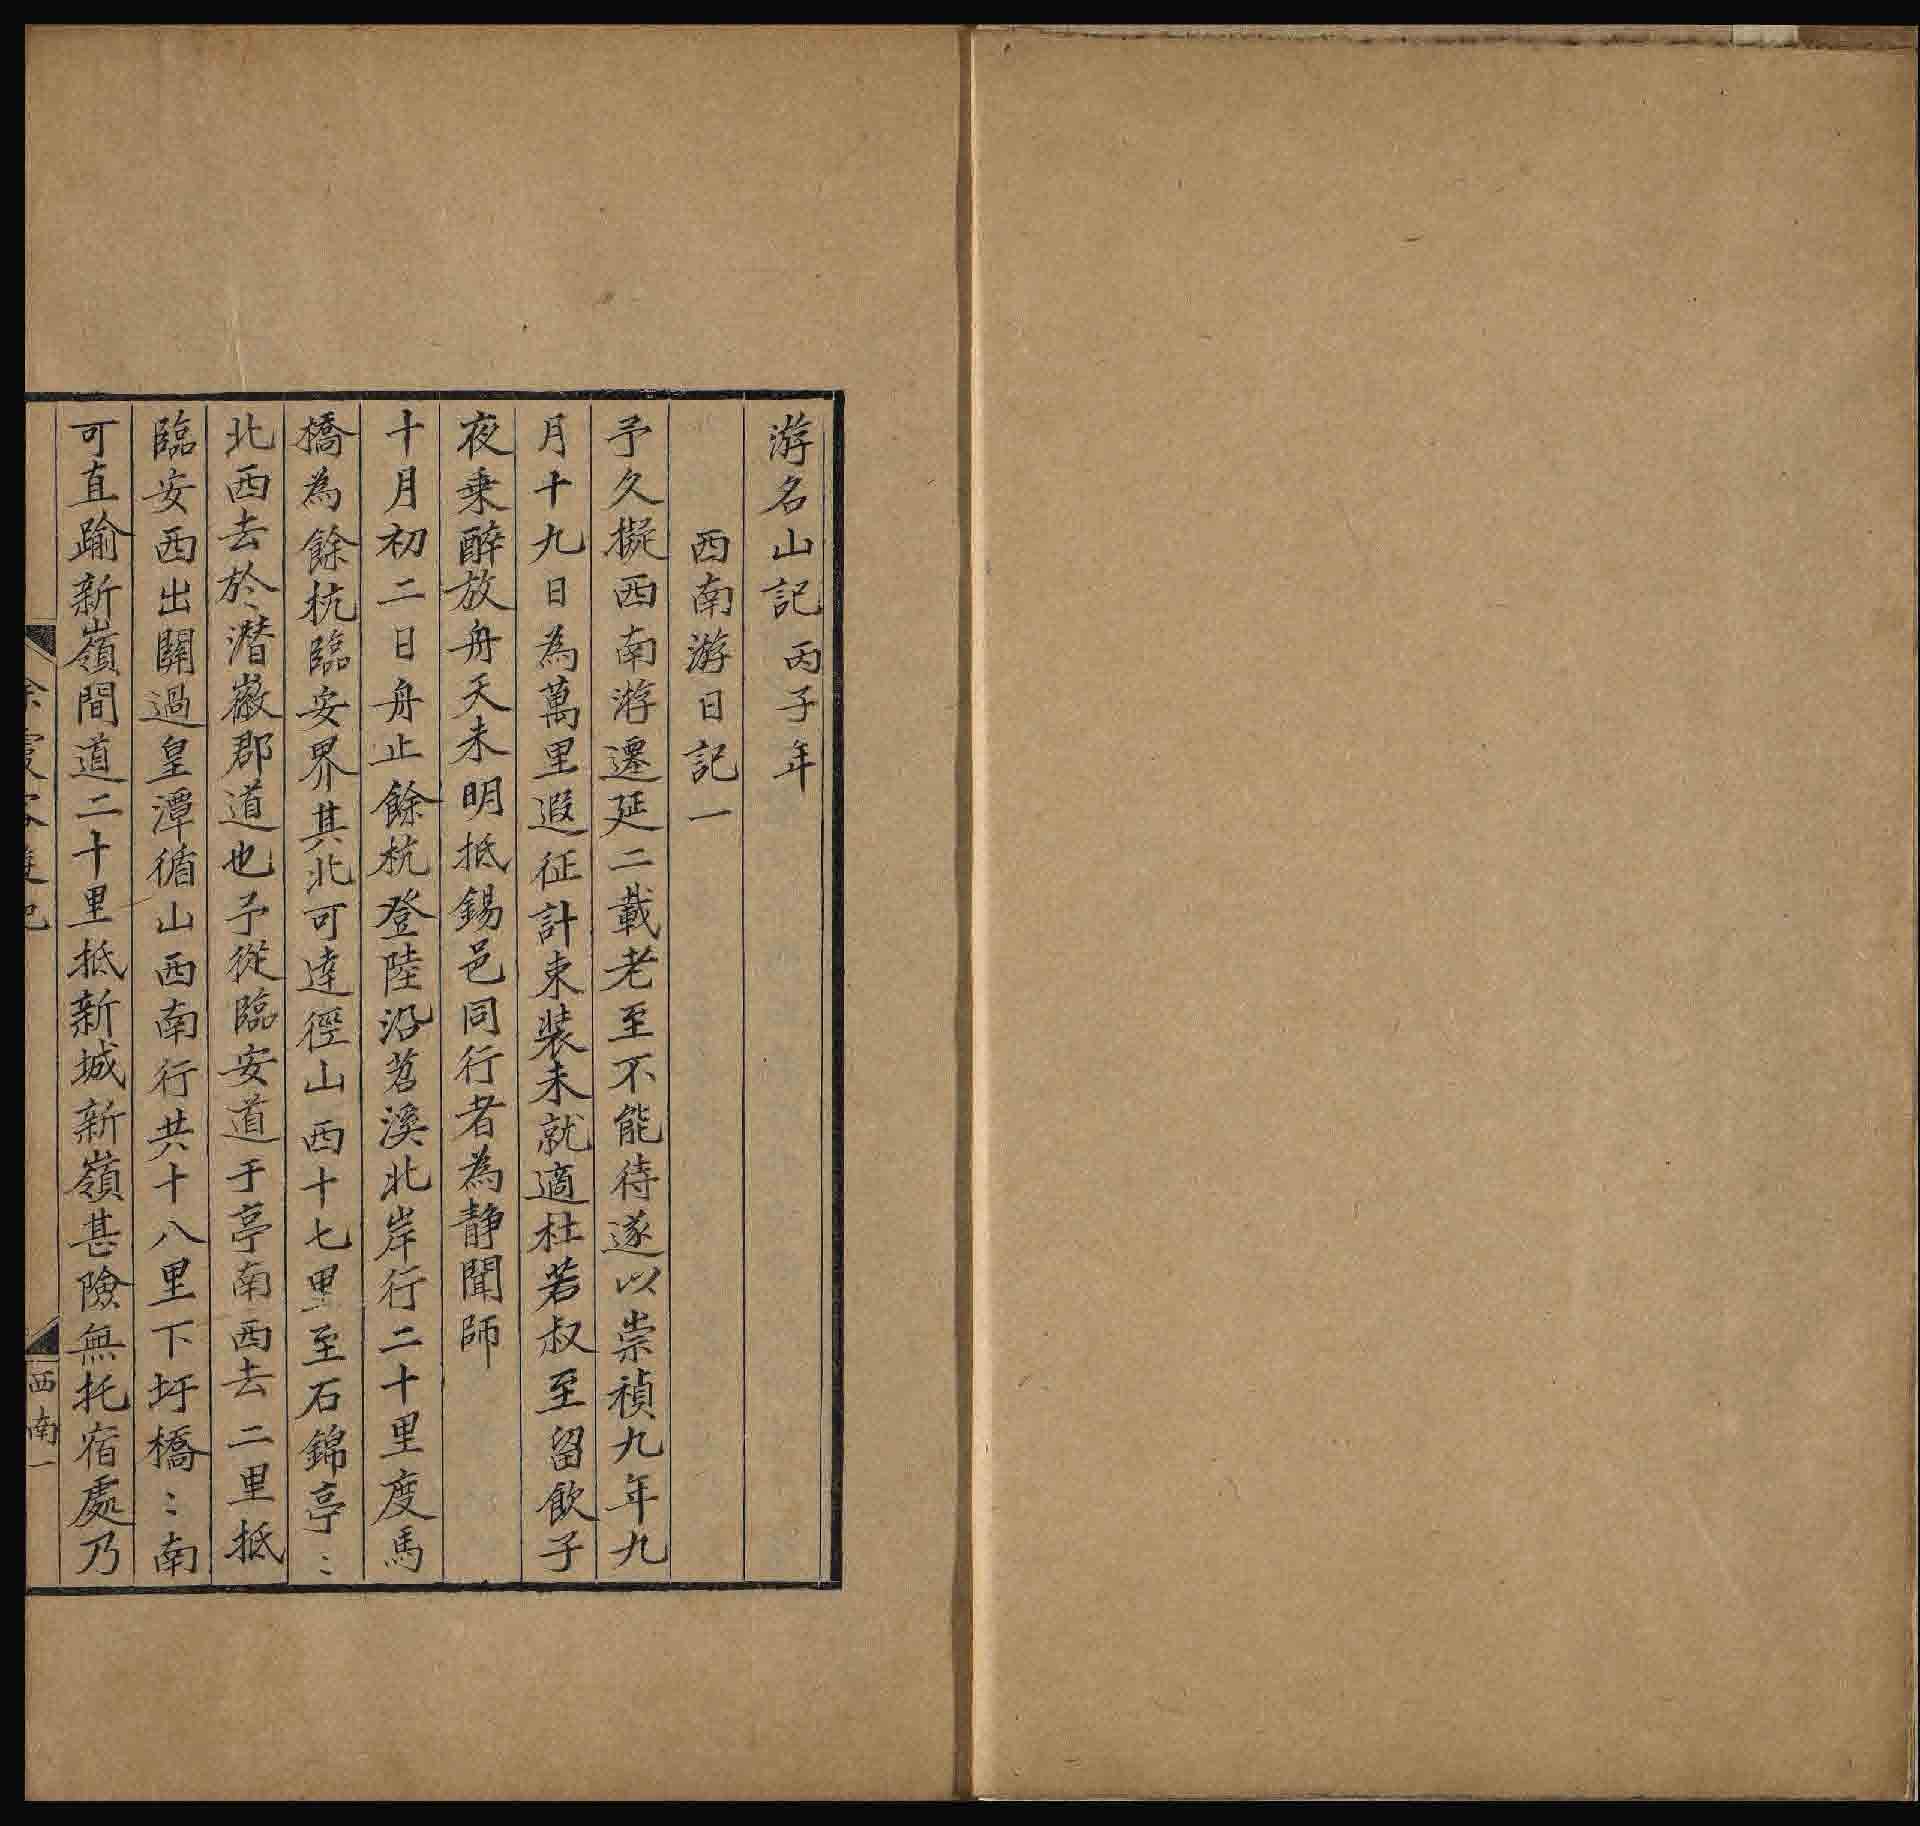 游名山記 丙子年
西南游日記一
予久擬西南游遷延二載老至不能待遂以崇禎九年九
月十九日為萬里遐征計束裝未就適杜若叔至留飲子
夜乗醉放舟天未明抵錫邑同行者為静聞師
十月初二日舟止餘杭登陸沿苕溪北岸行二十里度馬
橋為餘杭臨安界其北可達徑山西十七里至石錦亭〻
北西去於潛徽郡道也予從臨安道于亭南西去二里抵
臨安西出關過皇潭循山西南行共十八里下圩橋〻南
可直踰新嶺間道二十里抵新城新嶺甚險無托宿處乃
徐霞客遊記
西南一